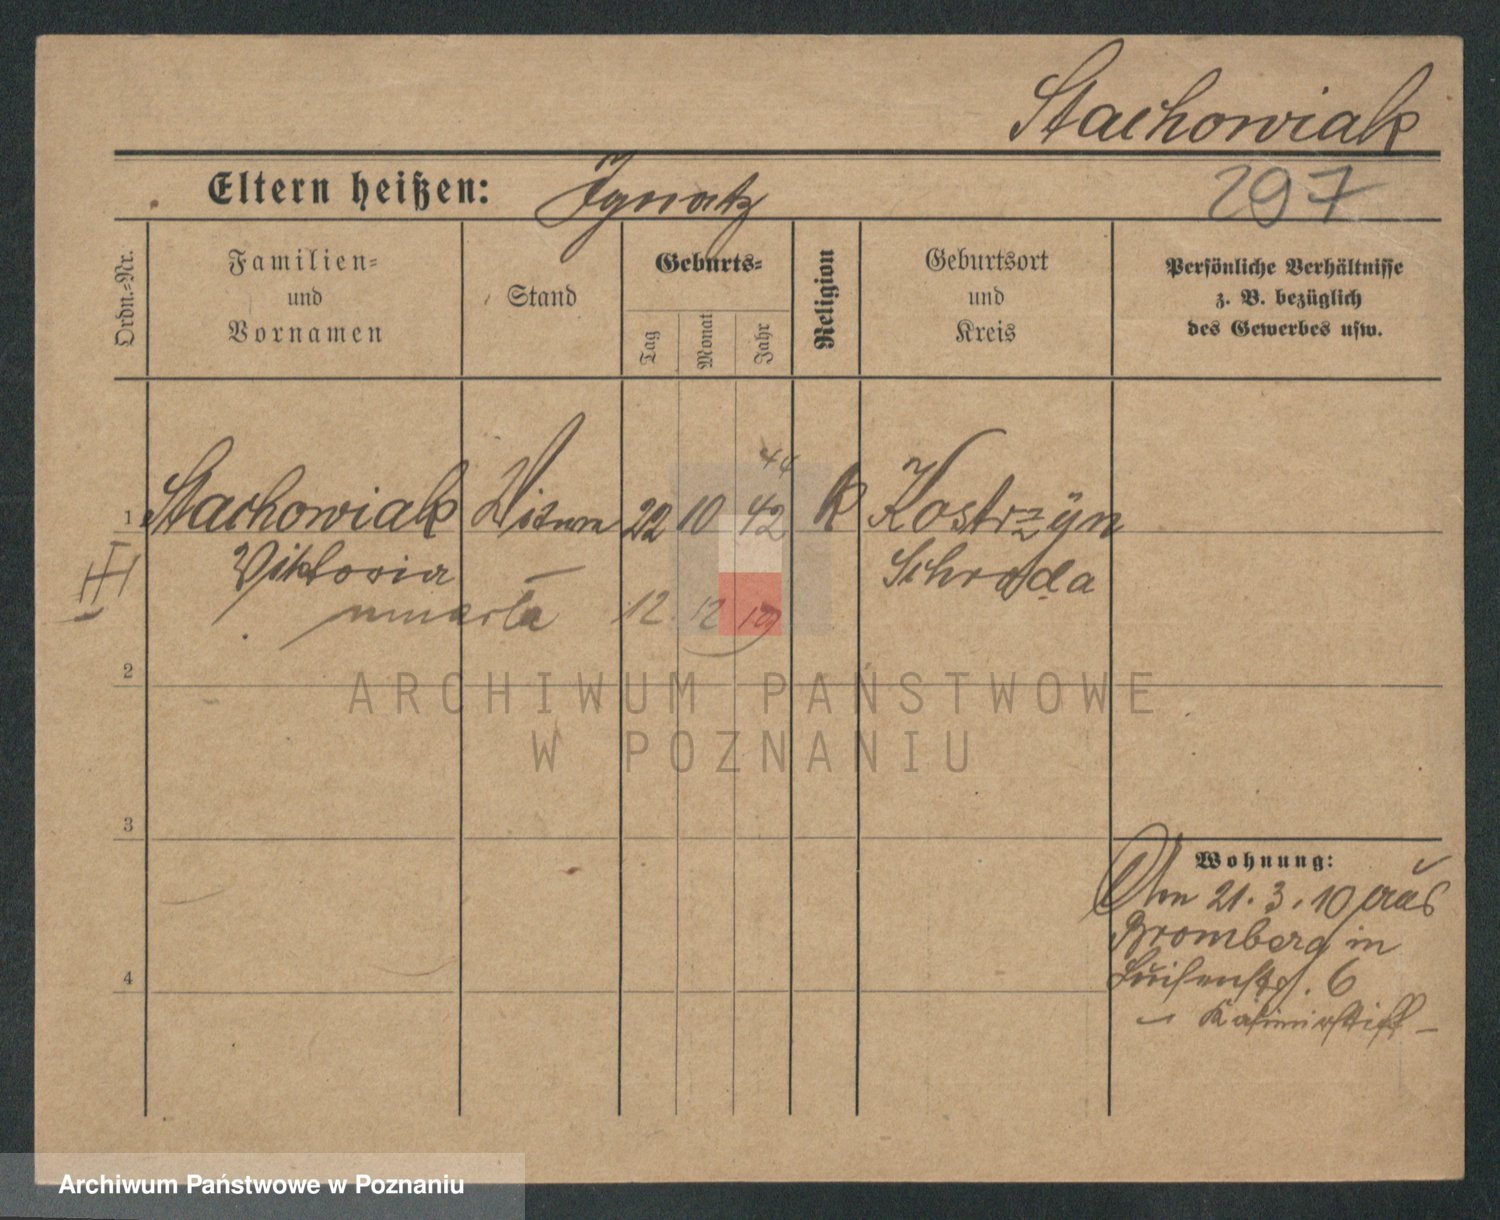 Stachowiak
Eltern heißen: Ignatz
297
Ordn.-Nr.
Familien-
und
Vornamen
Stand
Geburts-
Tag
Monat
Jahr
Religion
Geburtsort
und
Kreis
Persönliche Verhältnisse
z. B. bezüglich
des Gewerbes usw.
44
1 Stachowiak 22 10 42 k Kostrzyn
Viktoria Schroda
umarła 12. 12 19
III
2
ARCHIWUM PAŃSTWOWE
W POZNANIU
3
Wohnung:
Am 21.3.10 aus
Bromberg in
Luisenstr. 6
4
Archiwum Państwowe w Poznaniu